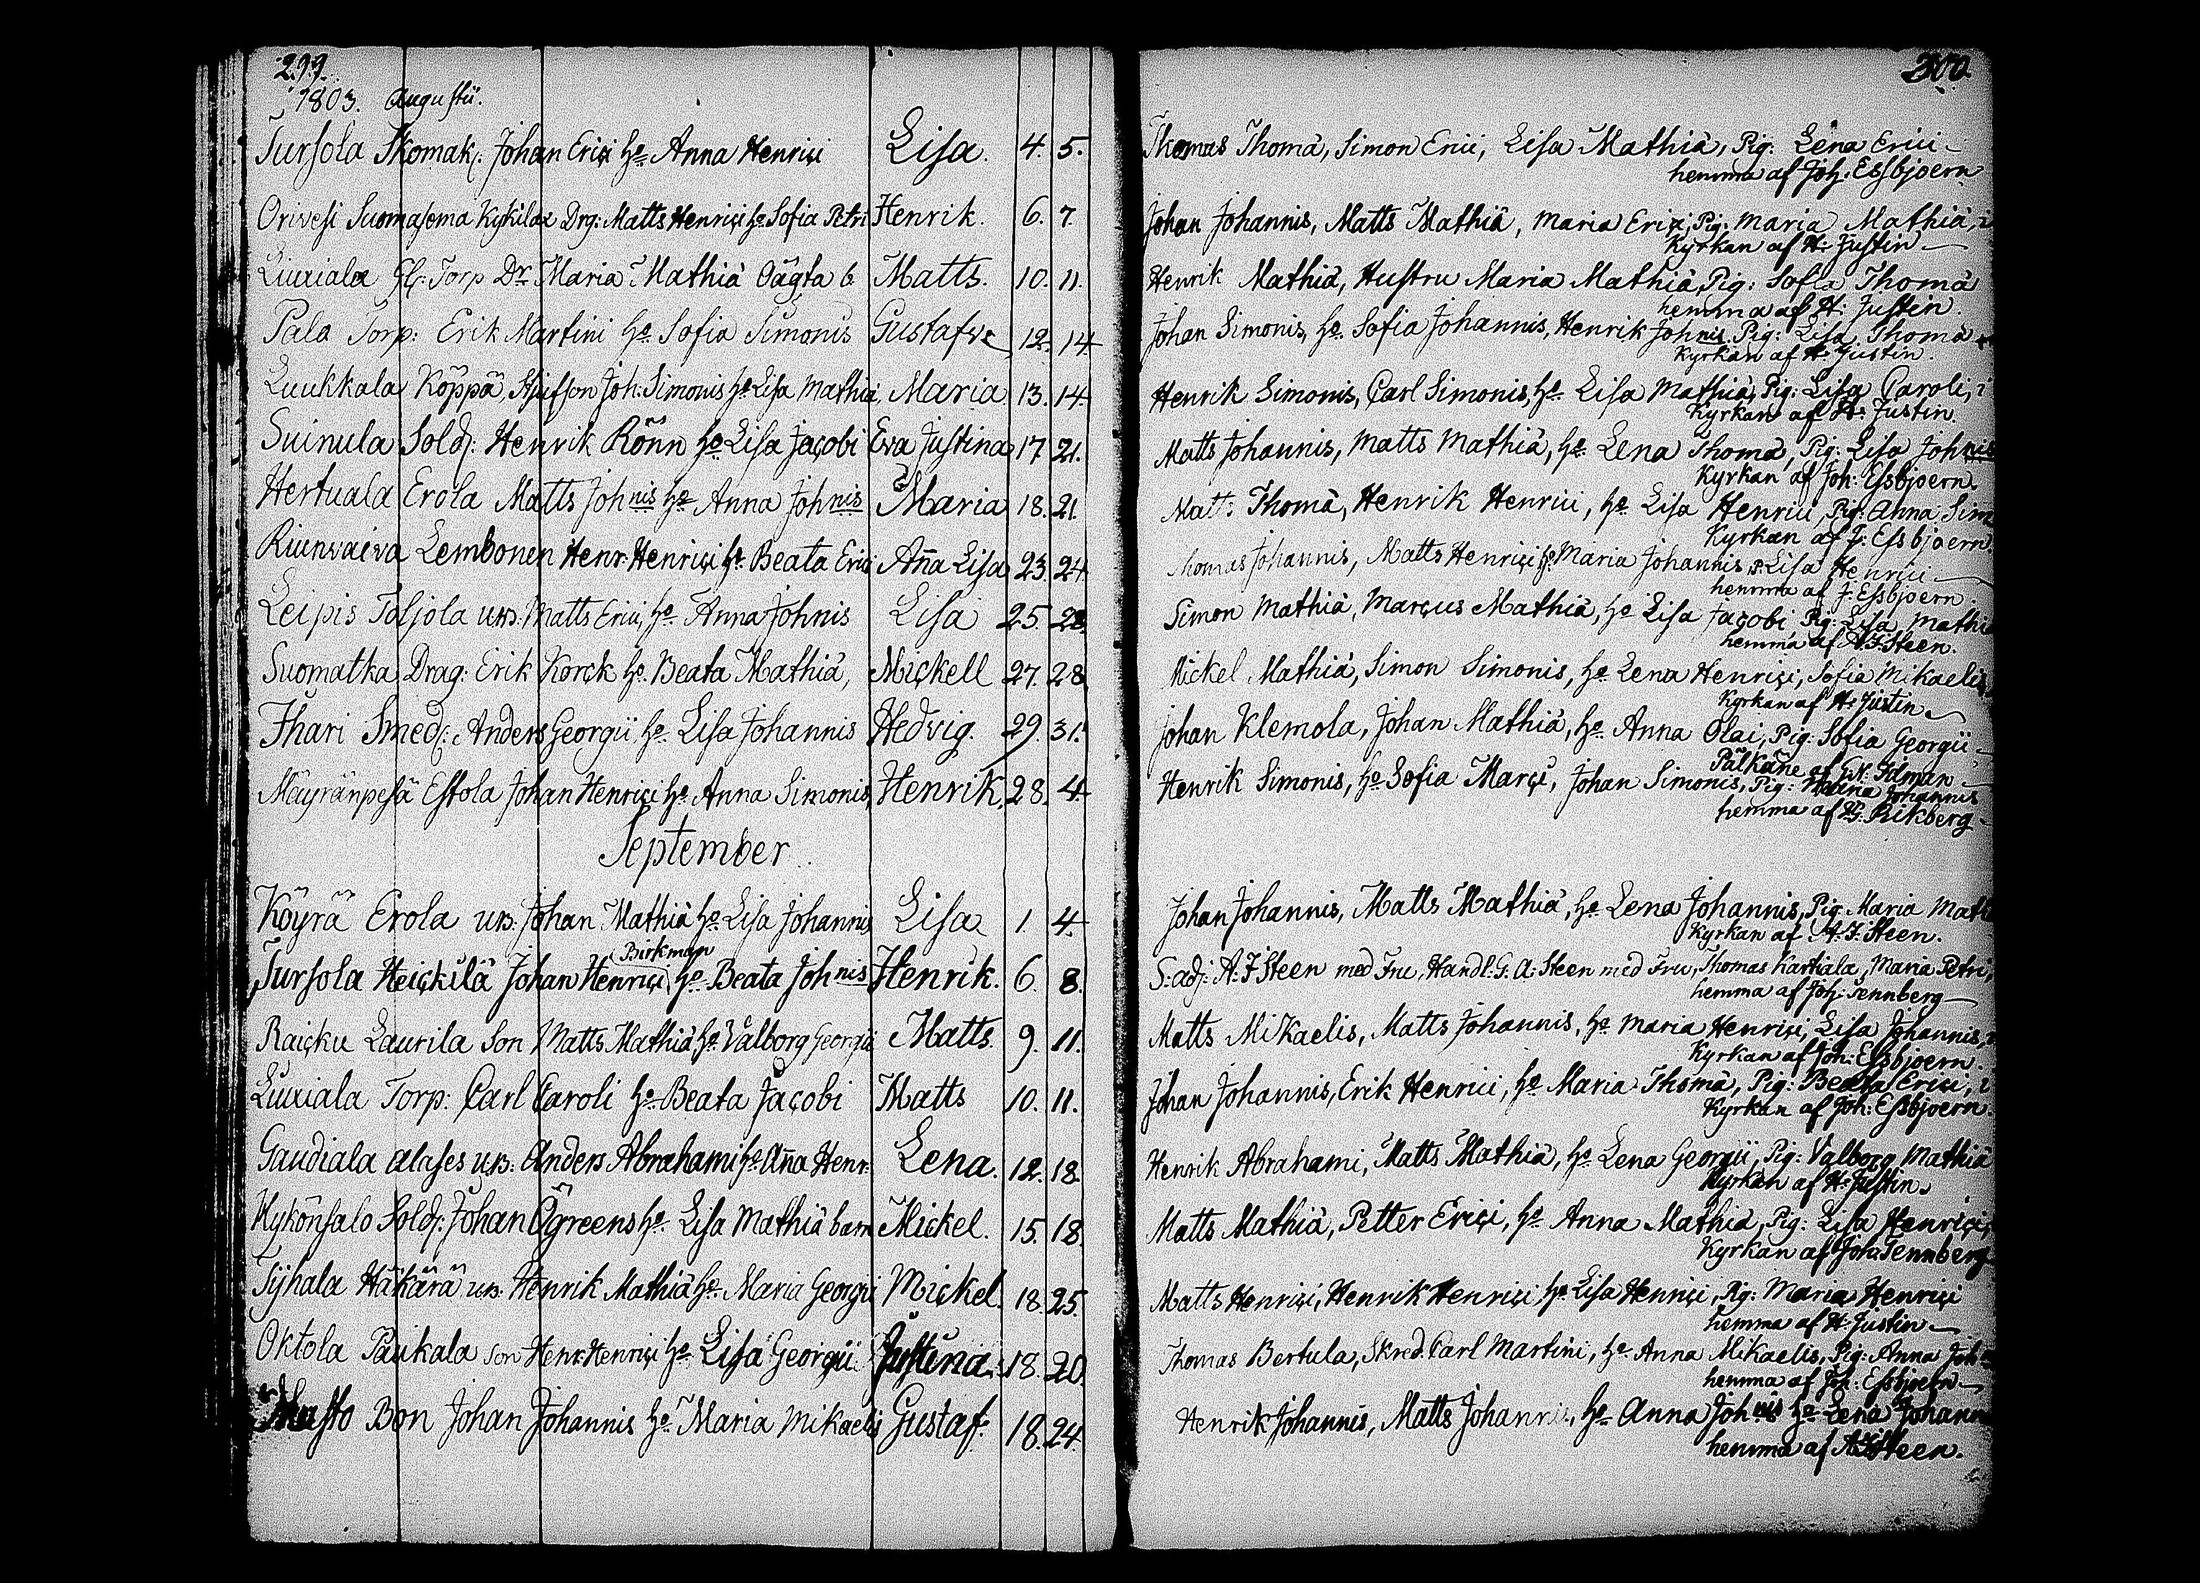 299.
1803. Augusti.
Tursola Skomak: Johan Erici H:o Anna Henrici Lisa. 4. 5.
Orivesi Suomasema Kykilax Drg: Matts Henrici H:o Sofia Petri Henrik. 6. 7
Liuxiala Torp Dr Maria Mathiä Oägta b Matts. 10. 11.
Pala Torp: Erik Martini H:o Sofia Simonis Gustafva 12. 14.
Luukkala Köppä, Joh: Simonis H:o Lisa Mathiä, Maria 13. 14.
Suinula Sold: Henrik Rönn H:o Lisa Jacobi Eva Justina 17 21.
Hertuala Erola Matts Johnis H:o Anna Johnis Maria 18. 21.
Riunvaiva Lembonen Henr: Henrici H:o Beata Erici Aña Lisa 23. 24.
Leipis Toljola us: Matts Erici, H:o Anna Johnis Lisa 25. 28.
Suomatka Drag: Erik Korck H:o Beata Mathiä, Mickell 27. 28.
Ihari Smed: Anders Georgii H:o Lisa Johannis Hedvig. 29. 31.
Mäyränpesä Estola Johan Henrici H:o Anna Simonis, Henrik. 28. 4.
September
Köyrä Erola us: Johan Mathiä H:o Lisa Johannis Lisa 1. 4.
Birkman
Tursola Heickilä Johan Henrici H:o Beata Johnis Henrik. 6. 8.
Raicku Laurila Son Matts Mathiä H:o Valborg Georgii Matts. 9. 11.
Liuxiala Torp: Carl Caroli H:o Beata Jacobi Matts 10. 11.
Gaudiala alases us: Anders Abrahami H:o Aña Henr: Lena. 12. 18.
Kykönsalo Sold: Johan Ögreens H:o Lisa Mathiä barn Mickel. 15. 18.
Tyhala Häkärä us: Henrik Mathiä H:o Maria Georgii Mickel. 18. 25.
Oktola Paukala Son Henr: Henrici H:o Lisa Georgii Justina. 18. 20.
Bon Johan Johannis H:o Maria Mikaelis Gustaf: 18. 24.
300
Thomas Thomä, Simon Erici, Lisa Mathiä, Pig: Lena Erici
hemma af Joh: Essbjoern
Johan Johannis, Matts Mathiä, Maria Erici, Pig: Maria Mathiä, i
Kyrkan af H: Justin
Henrik Mathiä, Hustru Maria Mathiä, Pig: Sofia Thomä
hemma af H: Justin.
Johan Simonis, H:o Sofia Johannis, Henrik Johnis, Pig: Lisa Thomä
Kyrkan af H: Justin.
Henrik Simonis, Carl Simonis, H:o Lisa Mathiä, Pig: Lisa Caroli, i
Kyrkan af H: Justin.
Matts Johannis, Matts Mathiä, H:o Lena Thomä, Pig: Lisa Johnis
Kyrkan af Joh: Essbjoern.
Matt: Thomä, Henrik Henrici, H:o Lisa Henrici, Pig: Anna Sim
Kyrkan af J: Essbjoern.
Thomas Johannis, Matts Henrici, H:o Maria Johannis, P: Lisa Henrici
hemma af J: Essbjoern.
Simon Mathiä, Marcus Mathiä, H:o Lisa Jacobi Pig: Lisa Mathi
hemma af A: J: Steen.
Mickel Mathiä, Simon Simonis, H:o Lena Henrici, Sofia Mikaelis
Kyrkan af H: Justin
Johan Klemola, Johan Mathiä, H:o Anna Olai, Pig: Sofia Georgii
Pälkäne af G: N: Idman
Henrik Simonis, H:o Sofia Marci, Johan Simonis, Pig: Maria Johannis
hemma af H: Rikberg
Johan Johannis, Matts Mathiä, H:o Lena Johannis, Pig: Maria Math
Kyrkan af A: J: Steen.
S: adj: A: J Steen med Fru, Handl: G: A: Steen med Fru, Thomas Kartiala, Maria Petri,
hemma af Joh: Tennberg
Matts Mikaelis, Matts Johannis, H:o Maria Henrici, Lisa Johannis,
Kyrkan af Joh: Essbjoern.
Johan Johannis, Erik Henrici, H:o Maria Thomä, Pig: Beata Erici, i
Kyrkan af Joh: Essbjoern.
Henrik Abrahami, Matts Mathiä, H:o Lena Georgii, Pig: Valborg Mathiä
Kyrkan af H: Justin.
Matts Mathiä, Petter Erici, H:o Anna Mathiä, Pig: Lisa Henrici,
Kyrkan af Joh: Tennberg
Matts Henrici, Henrik Henrici H:o Lisa Henrici, Pig: Maria Henrici
hemma af H: Justin
Thomas Bertula, Skred. Carl Martini, H:o Anna Mikaelis, Pig: Anna Joh
hemma af Joh: Essbjoern
Henrik Johannis, Matts Johannis, H:o Anna Johnis H:o Lena Johann
hemma af A: J Steen.